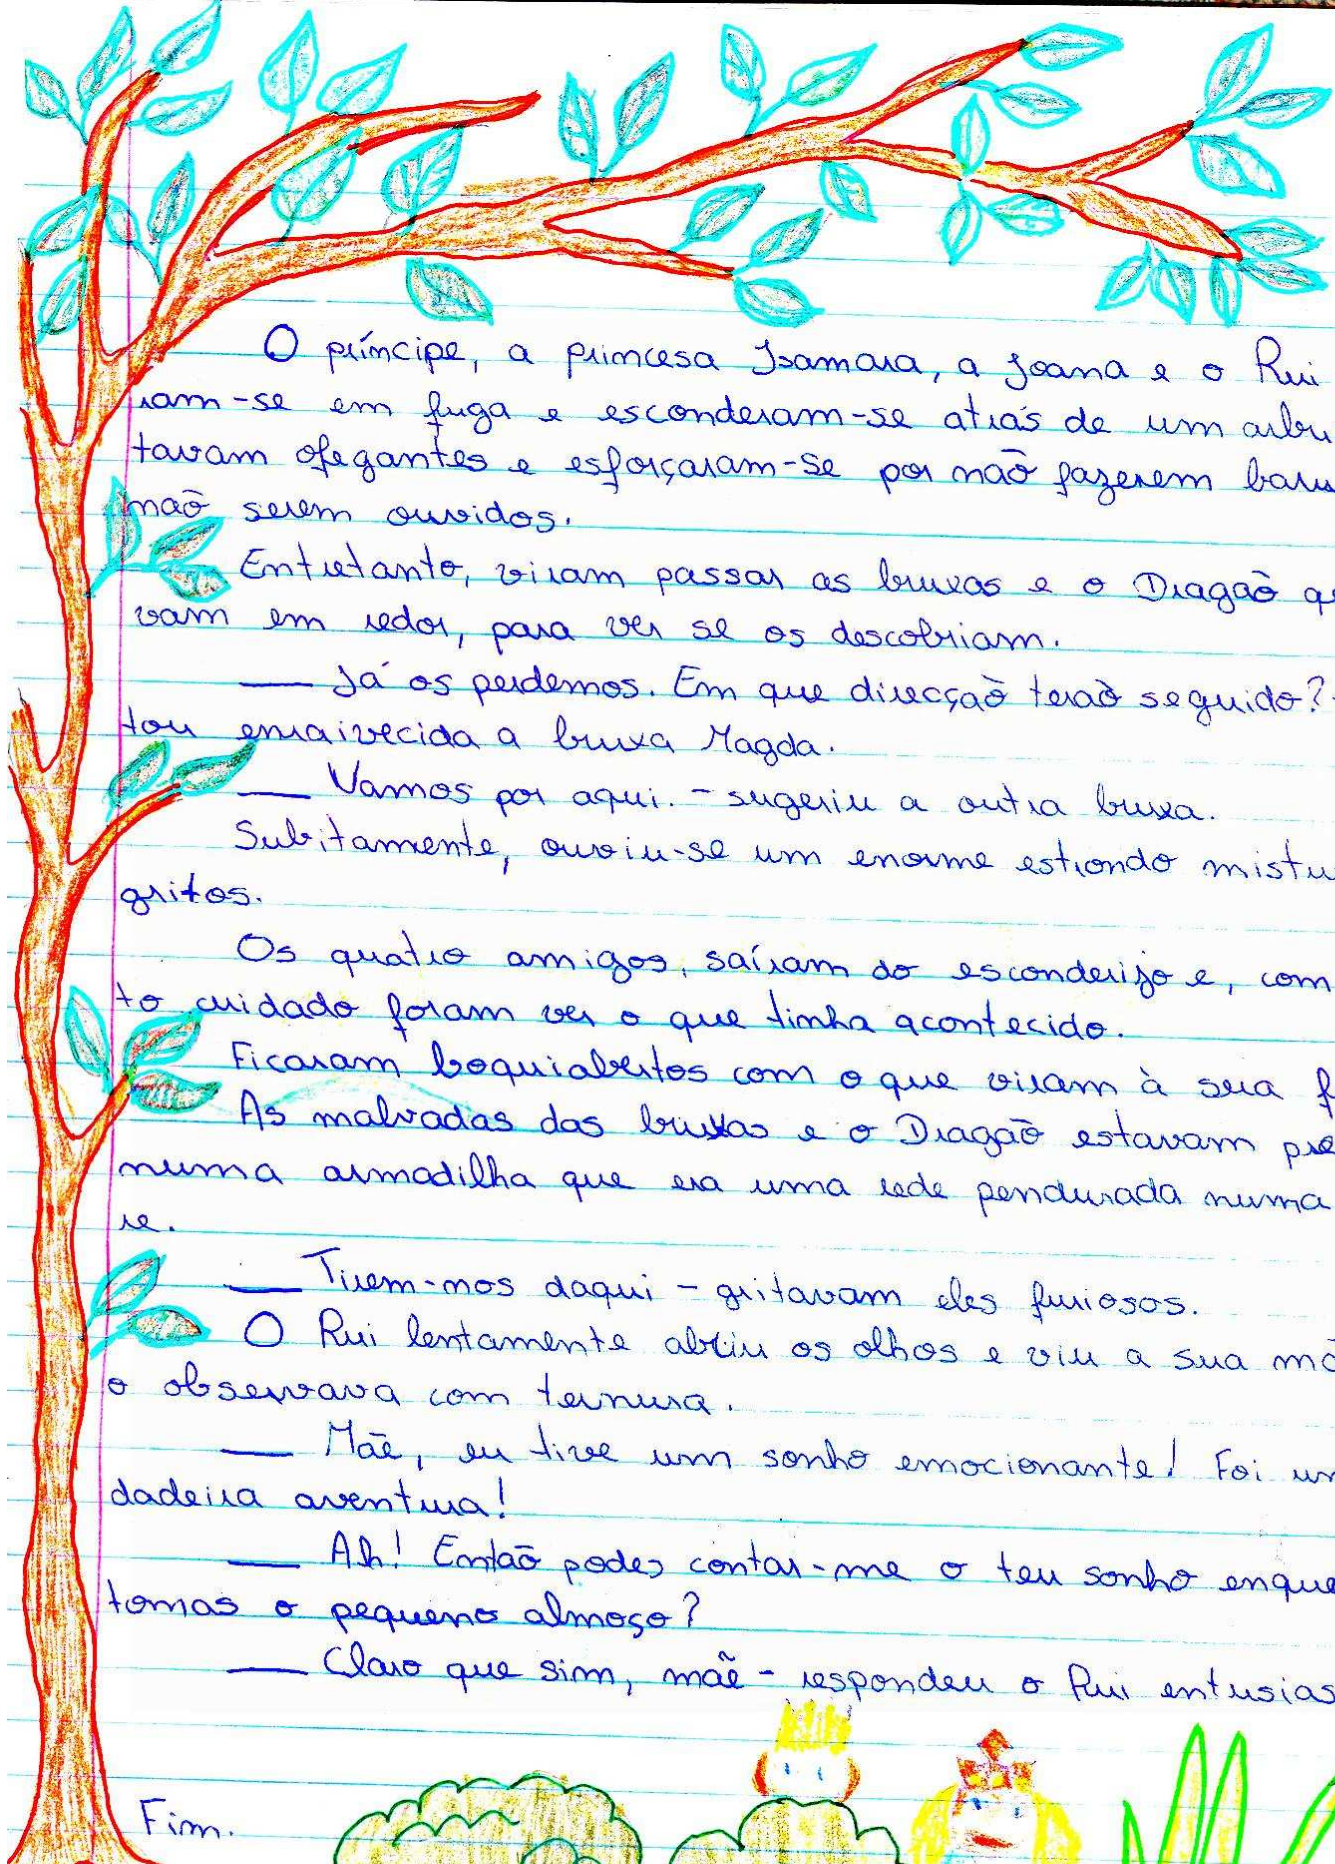 O príncipe, a princesa Isamara, a Joana e o Rui
ram-se em fuga e esconderam-se atrás de um arbu
tavam ofegantes e esforçaram-se por não fazerem baru
não serem ouvidos.
Entretanto, viram passar as bruxas e o Dragão q
vam em redor, para ver se os descobriam.
— Já os perdemos. Em que direcção terão seguido?
tou enraivecida a bruxa Magda.
— Vamos por aqui. - sugeriu a outra bruxa.
Subitamente, ouviu-se um enorme estrondo mistu
gritos.
Os quatro amigos, saíram do esconderijo e, com
to cuidado foram ver o que tinha acontecido.
Ficaram boquiabertos com o que viram à sua f
As malvadas das bruxas e o Dragão estavam pre
numa armadilha que era uma rede pendurada numa
re.
— Tirem-nos daqui - gritavam eles furiosos.
O Rui lentamente abriu os olhos e viu a sua mã
o observava com ternura.
— Mãe, eu tive um sonho emocionante! Foi um
dadeira aventura!
— Ah! Então podes contar-me o teu sonho enqua
tomas o pequeno almoço?
— Claro que sim, mãe - respondeu o Rui entusias
Fim.